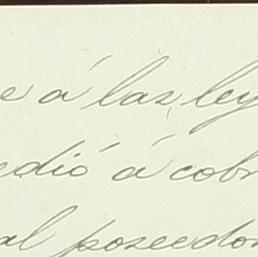 e á las ley
edió á cobr
al poseedor